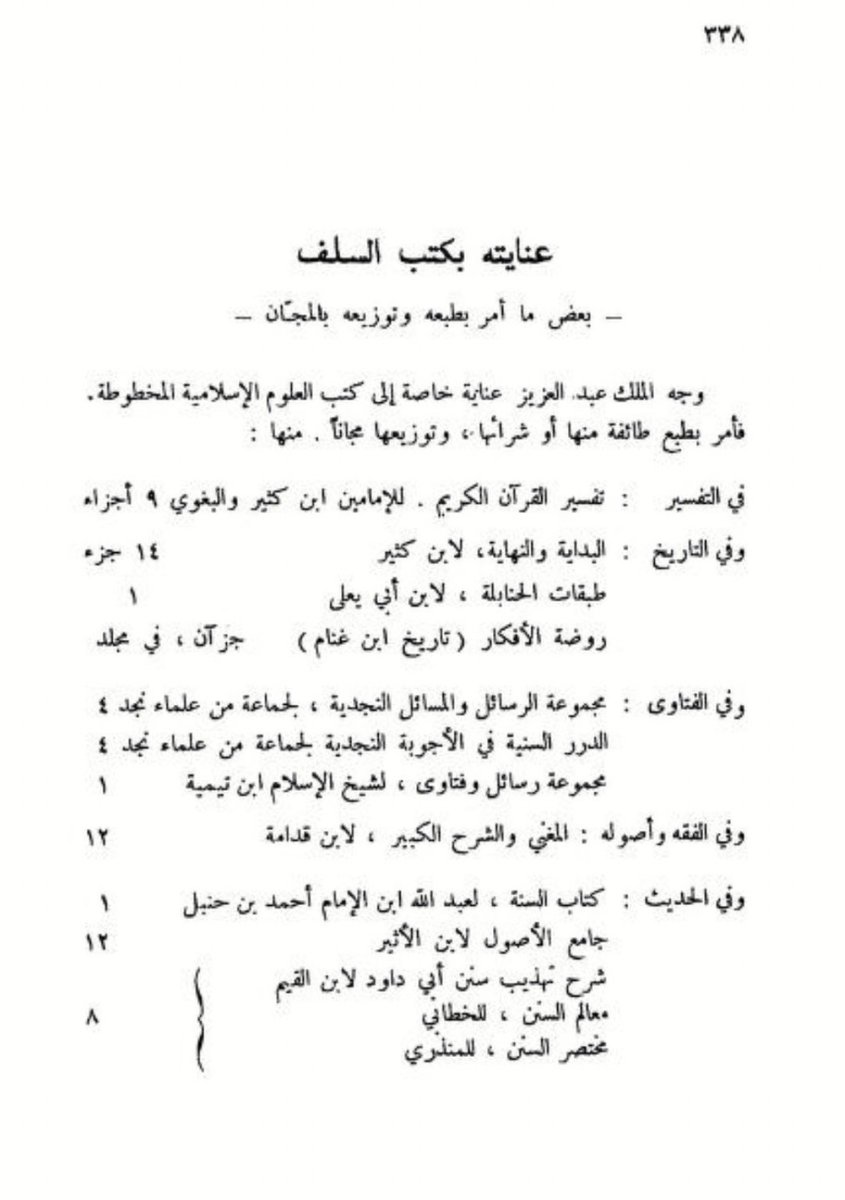 ٣٣٨
عنايته بكتب السلف
– بعض ما أمر بطبعه وتوزيعه بالمجّان –
وجه الملك عبد العزيز عناية خاصة إلى كتب العلوم الإسلامية المخطوطة.
فأمر بطبع طائفة منها أو شرائها، وتوزيعها مجاناً . منها :
في التفسير : تفسير القرآن الكريم . للإمامين ابن كثير والبغوي ٩ أجزاء
وفي التاريخ : البداية والنهاية، لابن كثير ١٤ جزء
طبقات الحنابلة ، لابن أبي يعلى ١
روضة الأفكار (تاريخ ابن غنام) جزآن ، في مجلد
وفي الفتاوى : مجموعة الرسائل والمسائل النجدية ، لجماعة من علماء نجد ٤
الدرر السنية في الأجوبة النجدية لجماعة من علماء نجد ٤
مجموعة رسائل وفتاوى ، لشيخ الإسلام ابن تيمية ١
وفي الفقه وأصوله : المغني والشرح الكبير ، لابن قدامة ١٢
وفي الحديث : كتاب السنة ، لعبد الله ابن الإمام أحمد بن حنبل ١
جامع الأصول لابن الأثير ١٢
شرح تهذيب سنن أبي داود لابن القيم
معالم السنن ، للخطابي ٨
مختصر السنن ، للمنذري